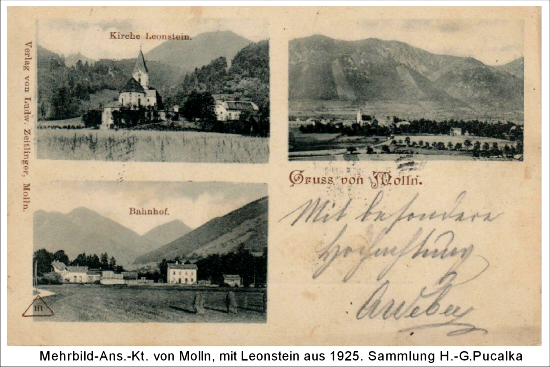 Kirche Leonstein.
Verlag von Ludw. Zeitlinger, Molln.
Gruss von Molln.
Bahnhof.
Mit besondere
Hochachtung
Mehrbild-Ans.-Kt. von Molln, mit Leonstein aus 1925. Sammlung H.-G.Pucalka